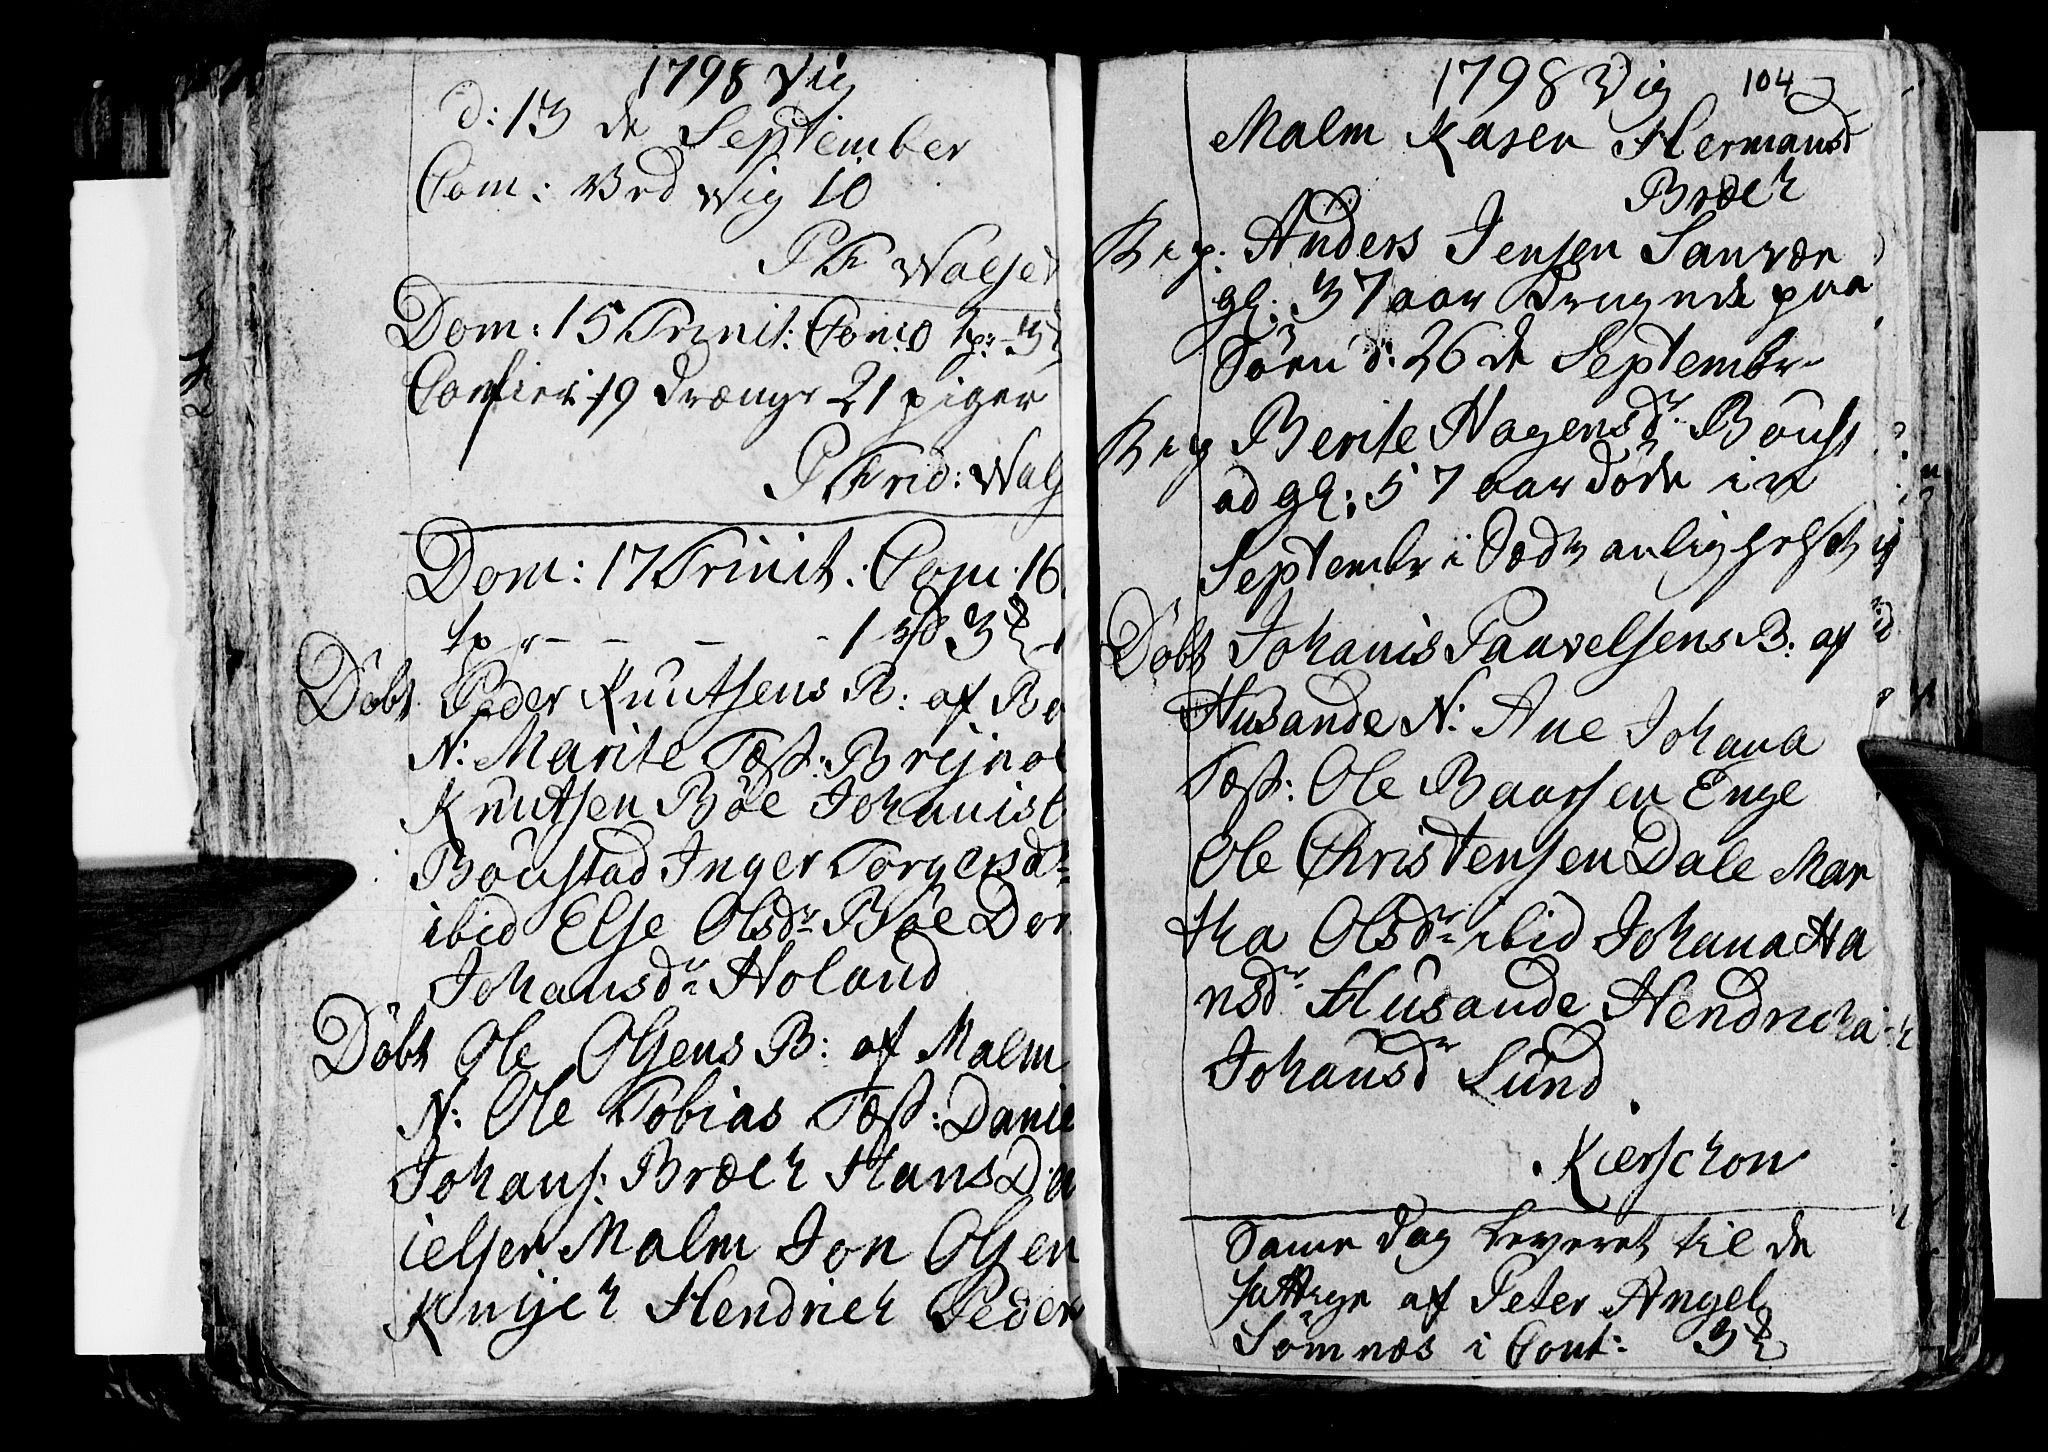 1798 Vig
d: 13 de September
Com: Ved Vig 10
P F Walse
Dom: 15 Trinit: Com: 0 tpr - 3
Confier: 19 Drænge 21 piger
P Frid: Wals
Dom: 17 Trinit: Com: 16
tpr - - - - 1 3
Døbt Peder Knutsens B: af Bø
N: Marite Test: Brijnol
Knutsen Bøe Johanis
Bøustad Inger Torgersdr
ibid Else Olsdr Bøe Dor
Johansdr Holand
Døbt Ole Olsens B: af Malm
N: Ole Tobias Test: Danie
Johans: Bræck Hans Da
ielsen Malm Jon Olsen
Knijch Hendrich Peder
1798 Vig 104
Malm Karen Hermansd
Bræck
Reg. Anders Jensen Sanvær
gl: 37 aar Drugnede paa
Søen d: 26 de Septembr
Reg Berite Hagensdr Bøust
ad gl: 57 aar Døde in
Septembr i
Døbt Johanis Paavelsens B: af
Husande N: Ane Johana
Test: Ole Baarsen Enge
Ole Christensen Dale Mar
tha Olsdr ibid Johana Ha
nsdr Husande Hendricha
Johansdr Lund
Kierschon
Same Dag Leveret til de
fattige af Peter Angel
Sømnæs i Cont: 3